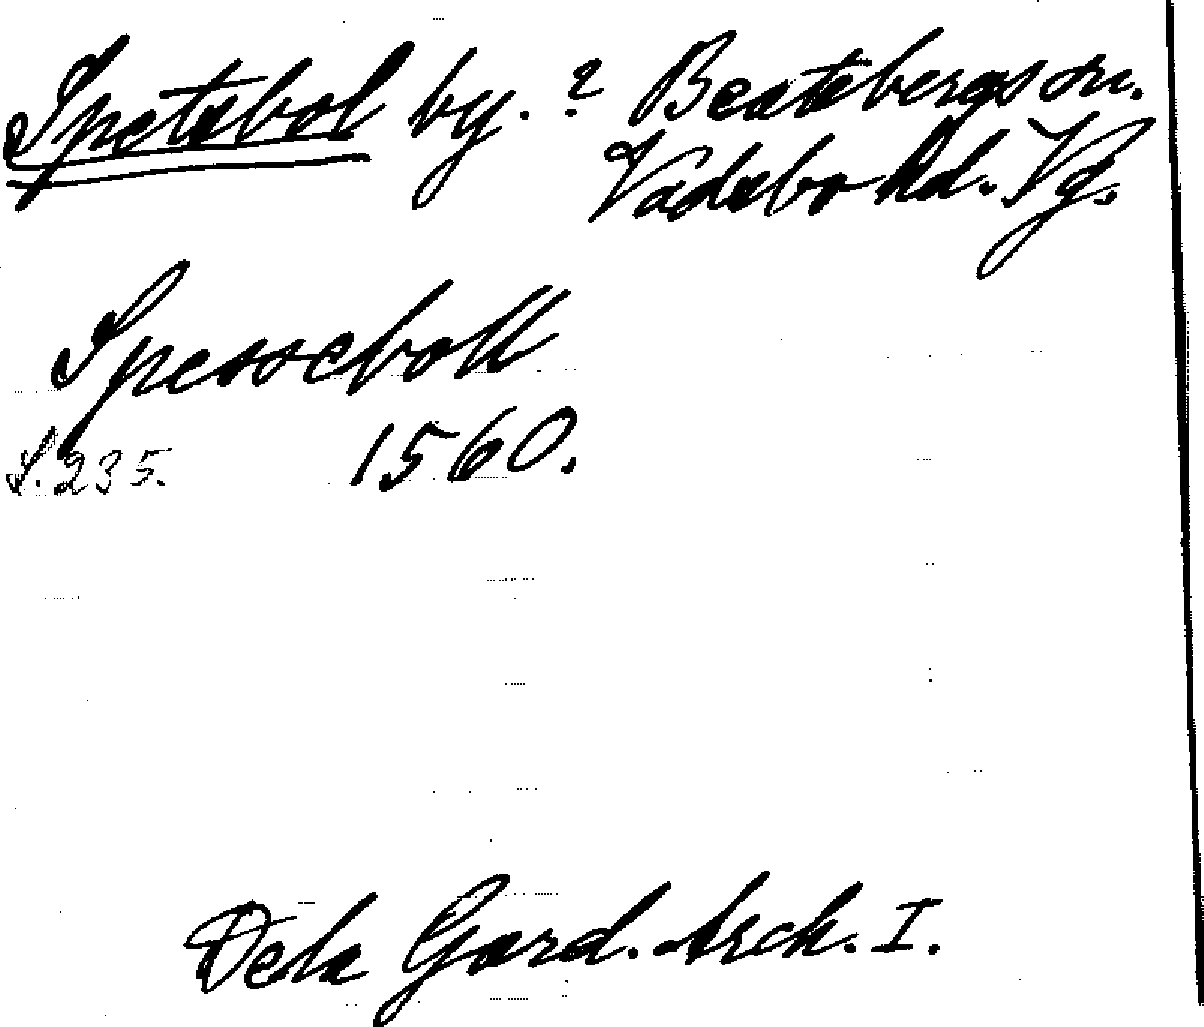 Spetebol by. ? Beatebergs sn.
Vadsbo hd. Vg.
Spesseboll
S. 235. 1560.
Dela Gard. Arch. I.